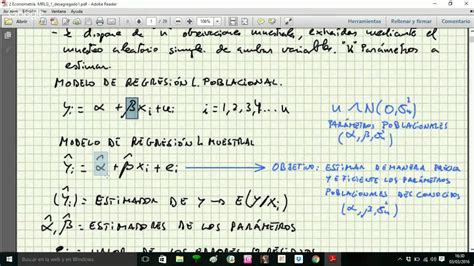 2.Econometria -MRLG_1_desagregado1.pdf - Adobe Reader
Herramientas Rellenar y firmar Comentario
- Se dispone de "n" observaciones muestrales, extraídas mediante el
muestreo aleatorio simple, de ambas variables. "K" Parámetros a
estimar.
MODELO DE REGRESIÓN L. POBLACIONAL.
Yi = α + βxi + ui i = 1,2,3,4... n
u ~ N(0,σ²u)
PARÁMETROS POBLACIONALES
(α,β,σ²u)
MODELO DE REGRESIÓN L. MUESTRAL
Ŷi = α̂ + β̂xi + ei → OBJETIVO: ESTIMAR DE MANERA PRECISA
Y EFICIENTE LOS PARÁMETROS
POBLACIONALES DESCONOCIDOS
(α,β,σ²u)
(Ŷi) = ESTIMADOR DE Y → E(Y/Xi)
α̂, β̂ = ESTIMADORES DE LOS PARÁMETROS
= VALOR DE LOS ERRORES
Buscar en la web y en Windows
16:30
03/03/2016